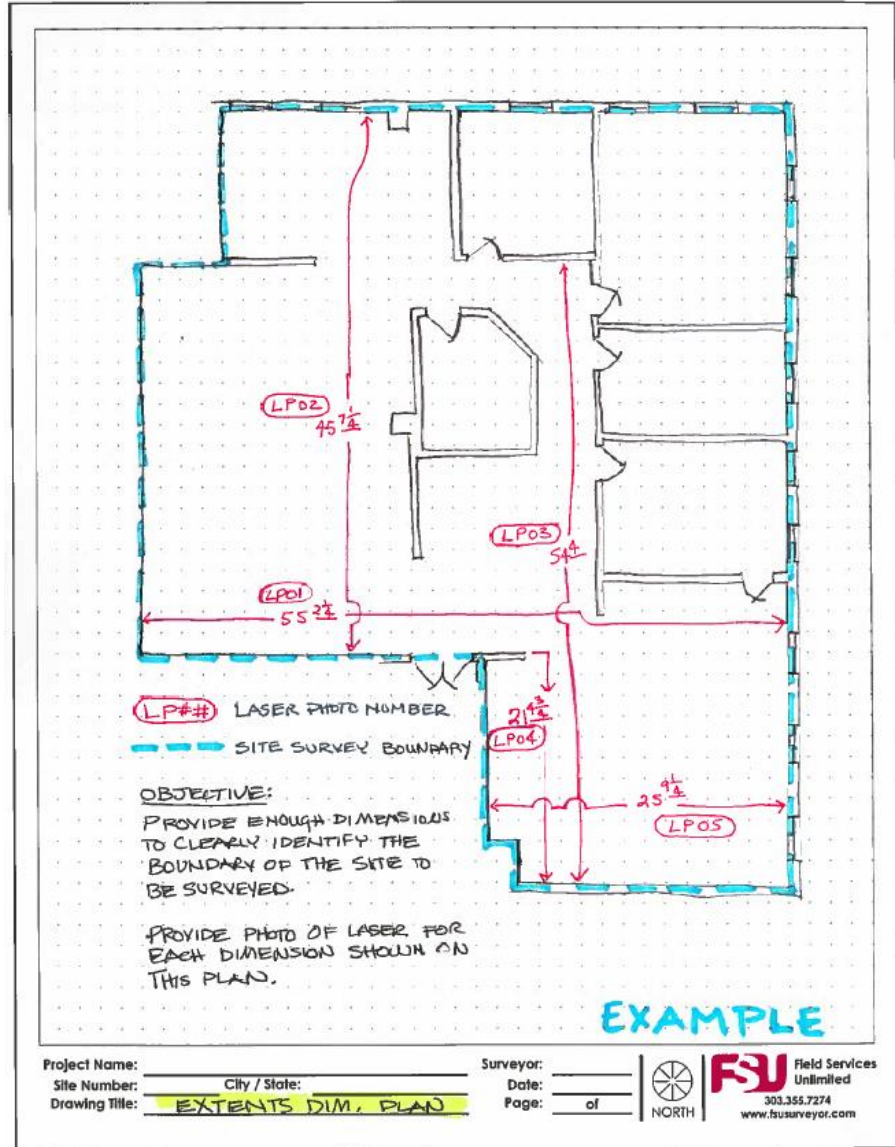 LP02
45 7 1/4
LP03
54 4
LP01
55 2 1/4
21 4 3/4
LP04
25 9 1/4
LP05
LP## LASER PHOTO NUMBER
SITE SURVEY BOUNDARY
OBJECTIVE:
PROVIDE ENOUGH DIMENSIONS
TO CLEARLY IDENTIFY THE
BOUNDARY OF THE SITE TO
BE SURVEYED.
PROVIDE PHOTO OF LASER FOR
EACH DIMENSION SHOWN ON
THIS PLAN.
EXAMPLE
Project Name:
Site Number:
City / State:
Drawing Title: EXTENTS DIM. PLAN
Surveyor:
Date:
Page: of
NORTH
FSU Field Services
Unlimited
303.355.7274
www.fsusurveyor.com